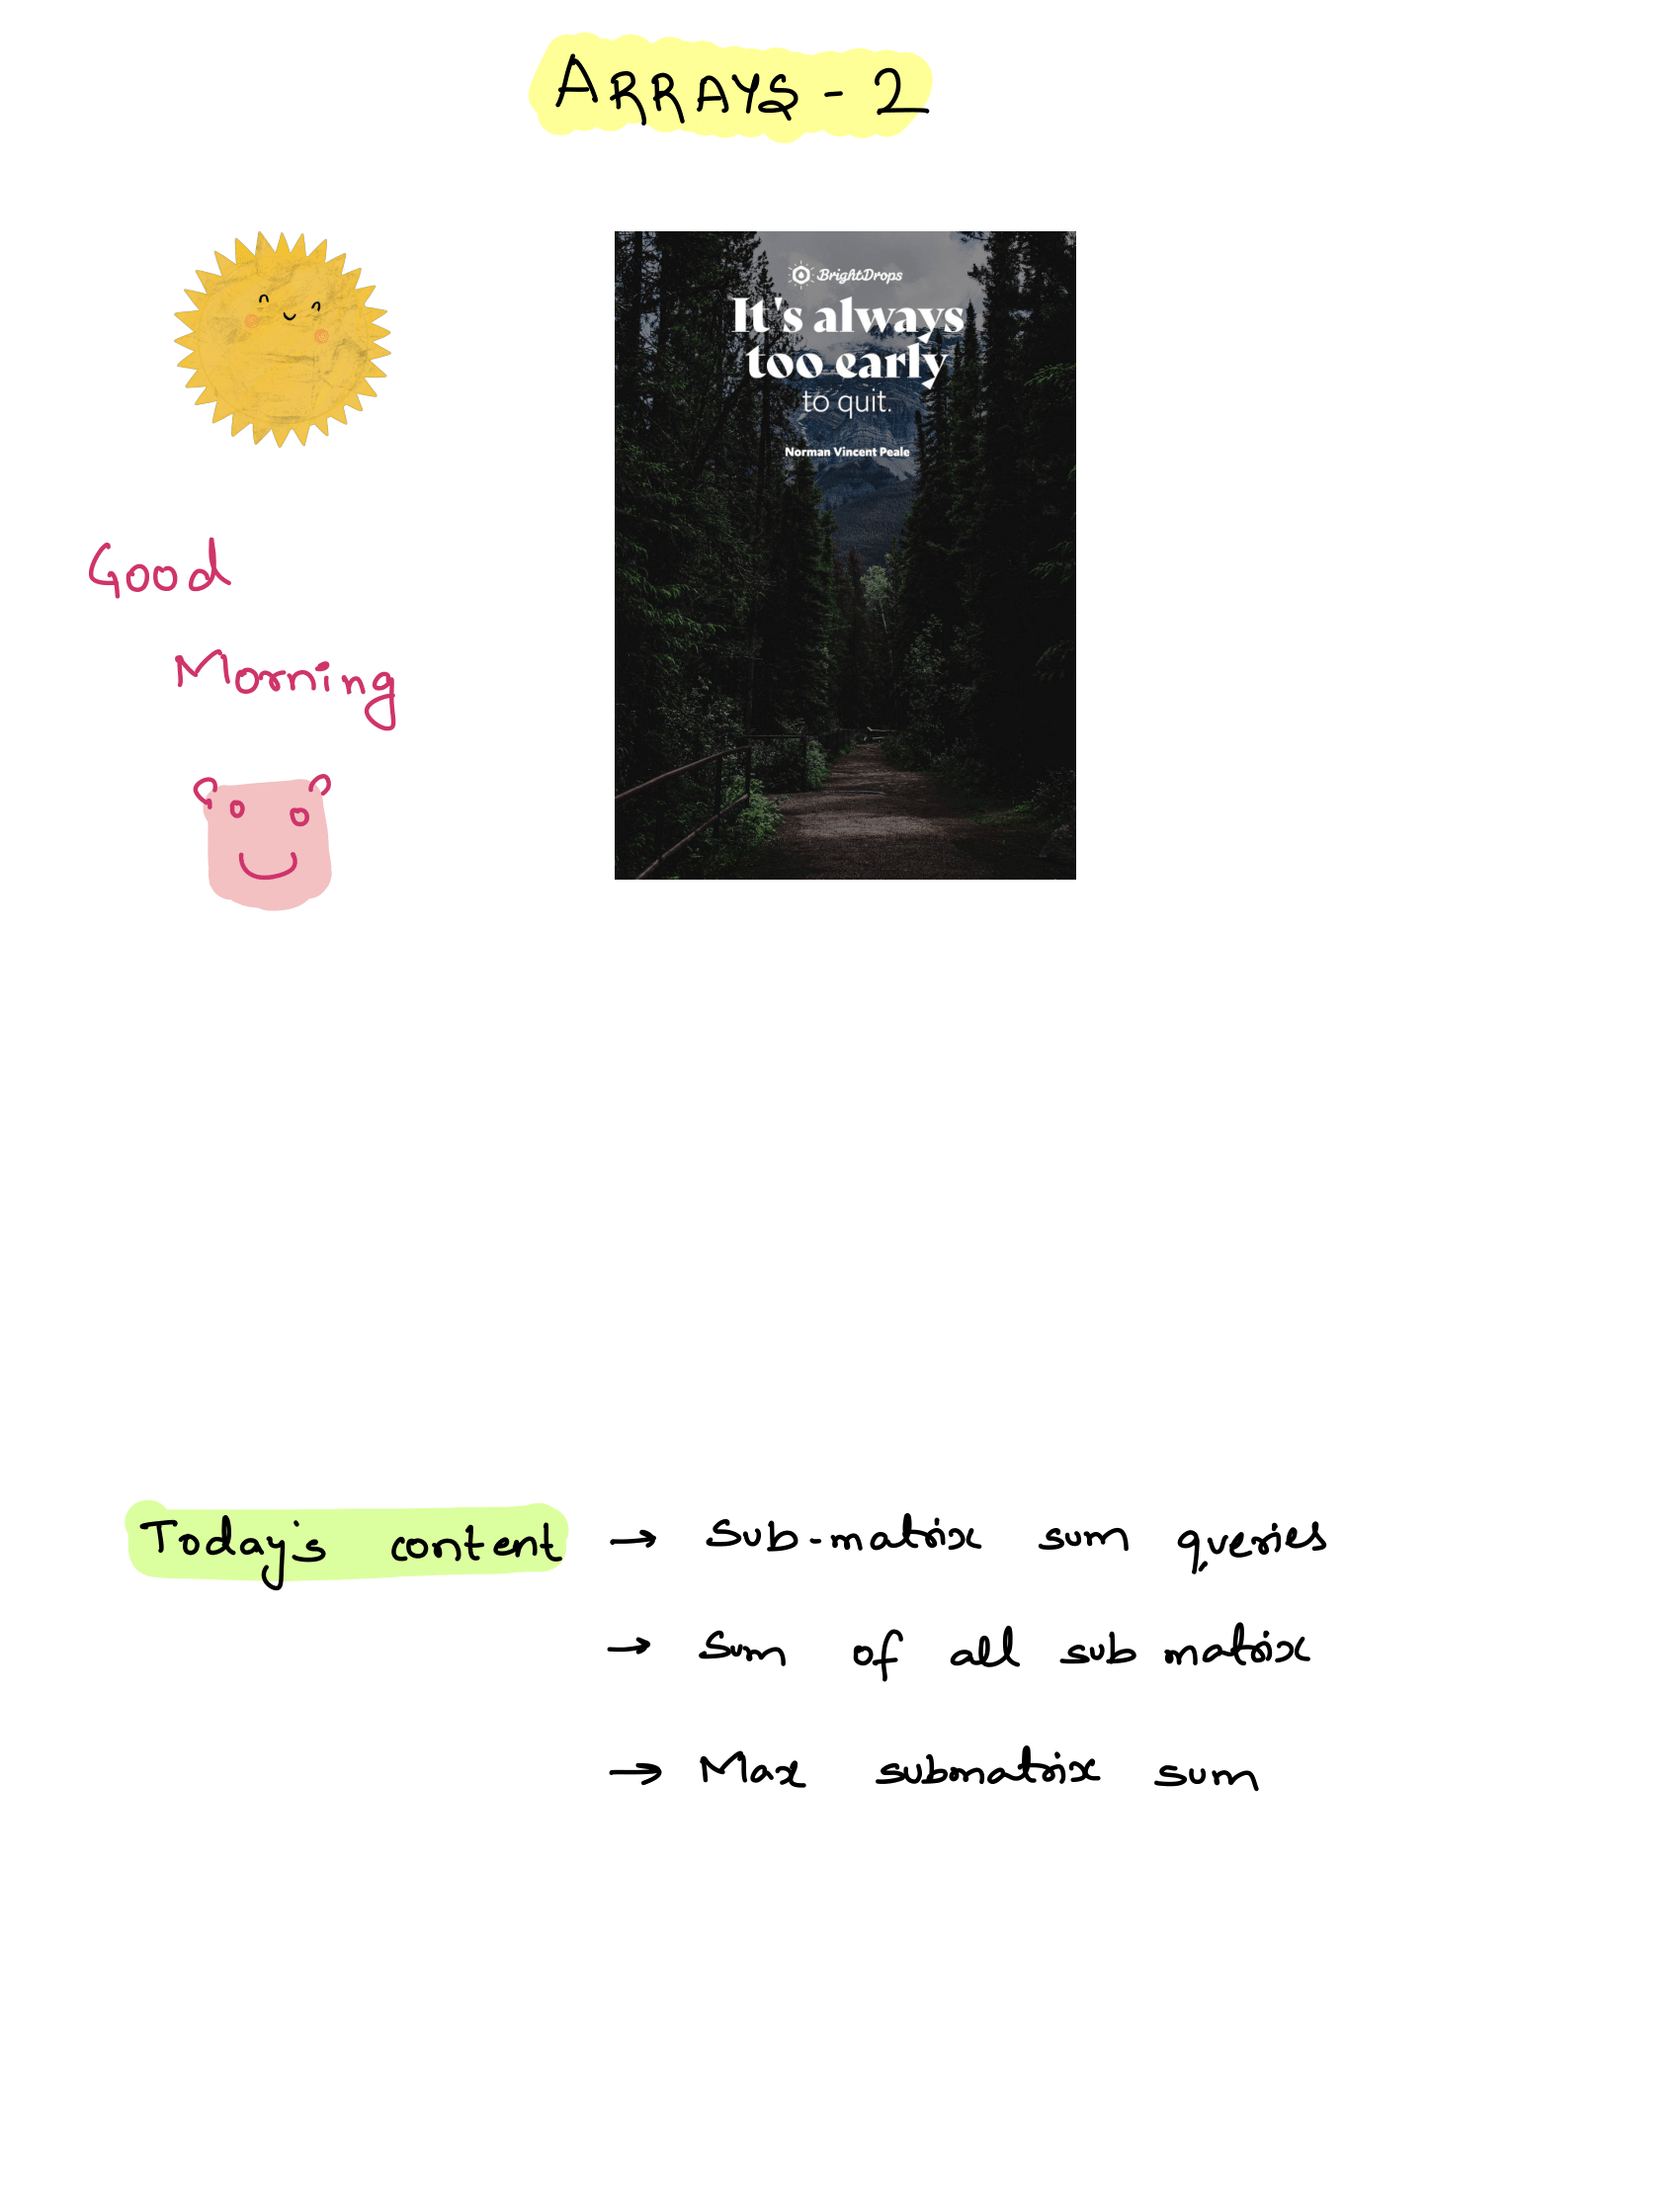 ARRAYS - 2
BrightDrops
It's always
too early
to quit.
Norman Vincent Peale
Good
Morning
Today's content → Sub-matrix sum queries
→ Sum of all sub matrix
→ Max submatrix sum